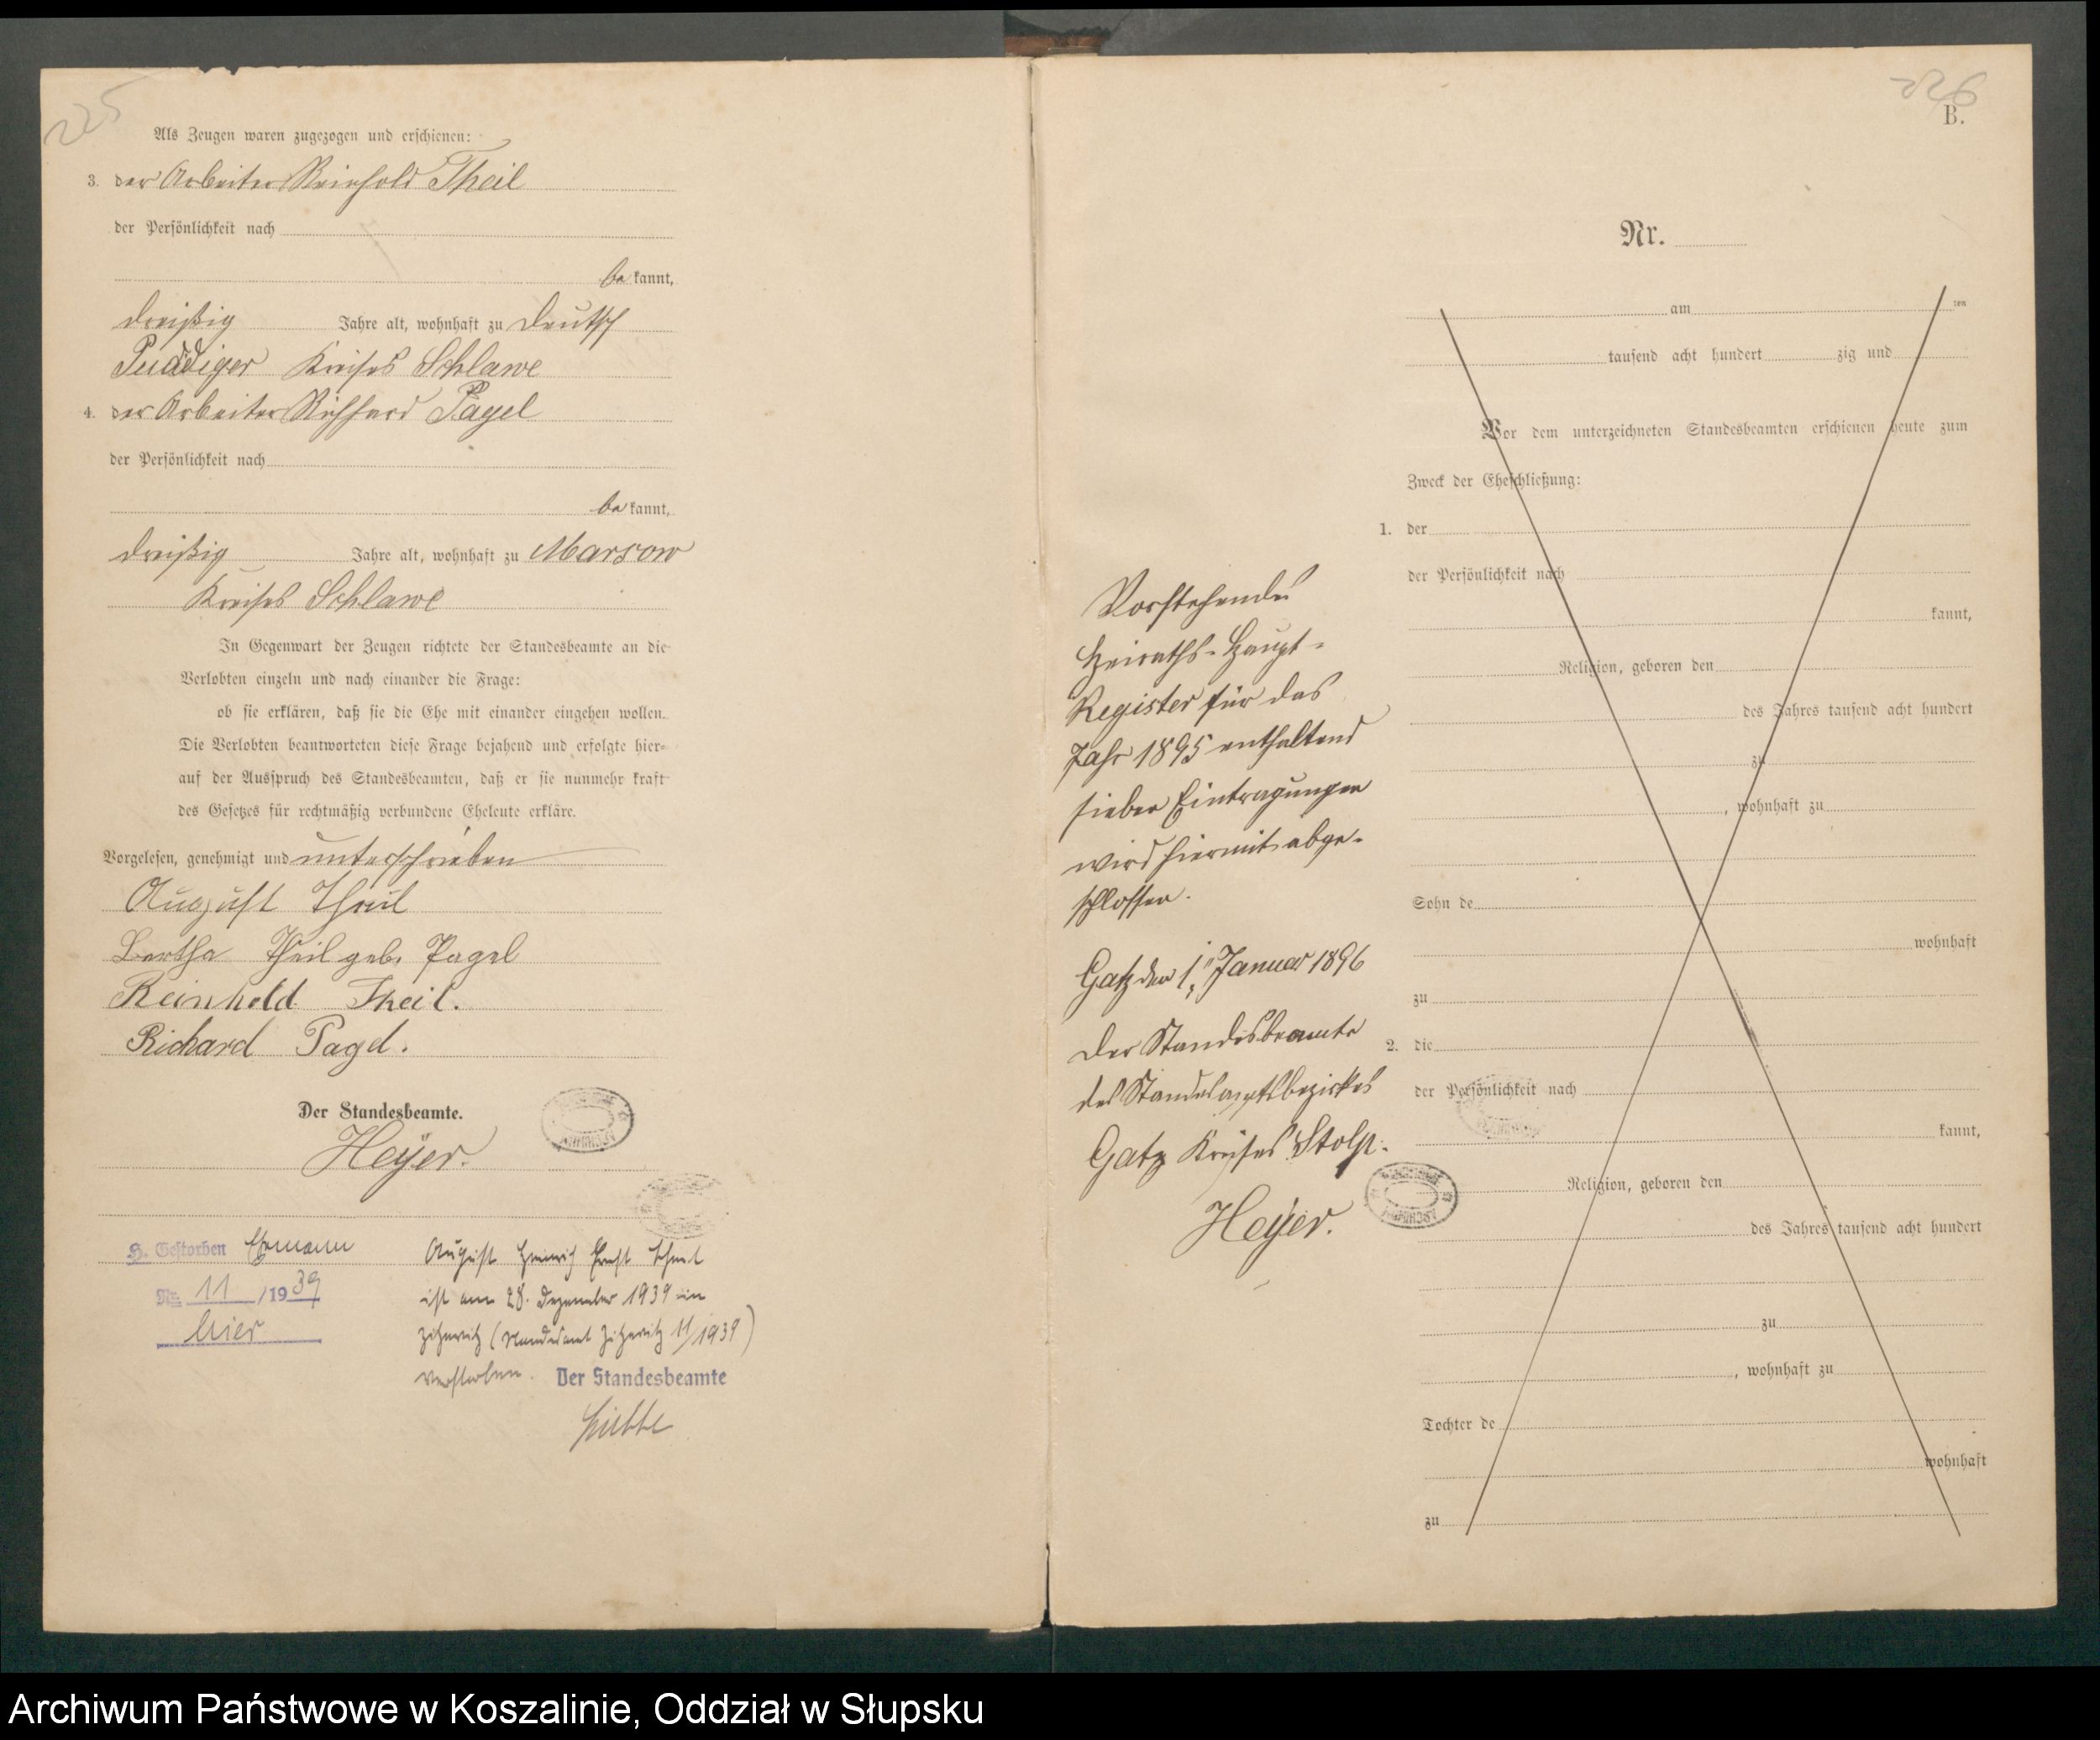 225
Als Zeugen waren zugezogen und erschienen:
3. der Arbeiter Reinhold Theil
der Persönlichkeit nach
be kannt,
dreißig Jahre alt, wohnhaft zu Deutsch
Puddiger Kreises Schlawe
4. der Arbeiter Richhard Pagel
der Persönlichkeit nach
be kannt,
dreißig Jahre alt, wohnhaft zu Marsow
Kreises Schlawe
In Gegenwart der Zeugen richtete der Standesbeamte an die
Verlobten einzeln und nach einander die Frage:
ob sie erklären, daß sie die Ehe mit einander eingehen wollen.
Die Verlobten beantworteten diese Frage bejahend und erfolgte hier-
auf der Ausspruch des Standesbeamten, daß er sie nunmehr kraft
des Gesetzes für rechtmäßig verbundene Eheleute erkläre.
Vorgelesen, genehmigt und unterschrieben
August Theil
Bertha Theil geb. Pagel
Reinhold Theil.
Richard Pagel.
Der Standesbeamte.
Heyer.
H. Gestorben Ehemann
Nr. 11 /1939
hier
August Heinrich Ernst
ist am 28. Dezember 1939 in
Zitzewitz (Standesamt Zitzewitz 11/1939)
verstorben. Der Standesbeamte
226
B.
Nr.
am ten
tausend acht hundert zig und
Vor dem unterzeichneten Standesbeamten erschienen heute zum
Zweck der Eheschließung:
1. der
der Persönlichkeit nach
kannt,
Religion, geboren den
des Jahres tausend acht hundert
zu
, wohnhaft zu
Sohn de
wohnhaft
zu
2. die
der Persönlichkeit nach
kannt,
Religion, geboren den
des Jahres tausend acht hundert
zu
, wohnhaft zu
Tochter de
wohnhaft
zu
Vorstehendes
Heiraths-Haupt-
Register für das
Jahr 1895 enthaltend
sieben Eintragungen
wird hiermit abge-
schlossen.
Gatz den 1. Januar 1896
Der Standesbeamte
des Standesamtsbezirkes
Gatz Kreises Stolp.
Heyer.
Archiwum Państwowe w Koszalinie, Oddział w Słupsku